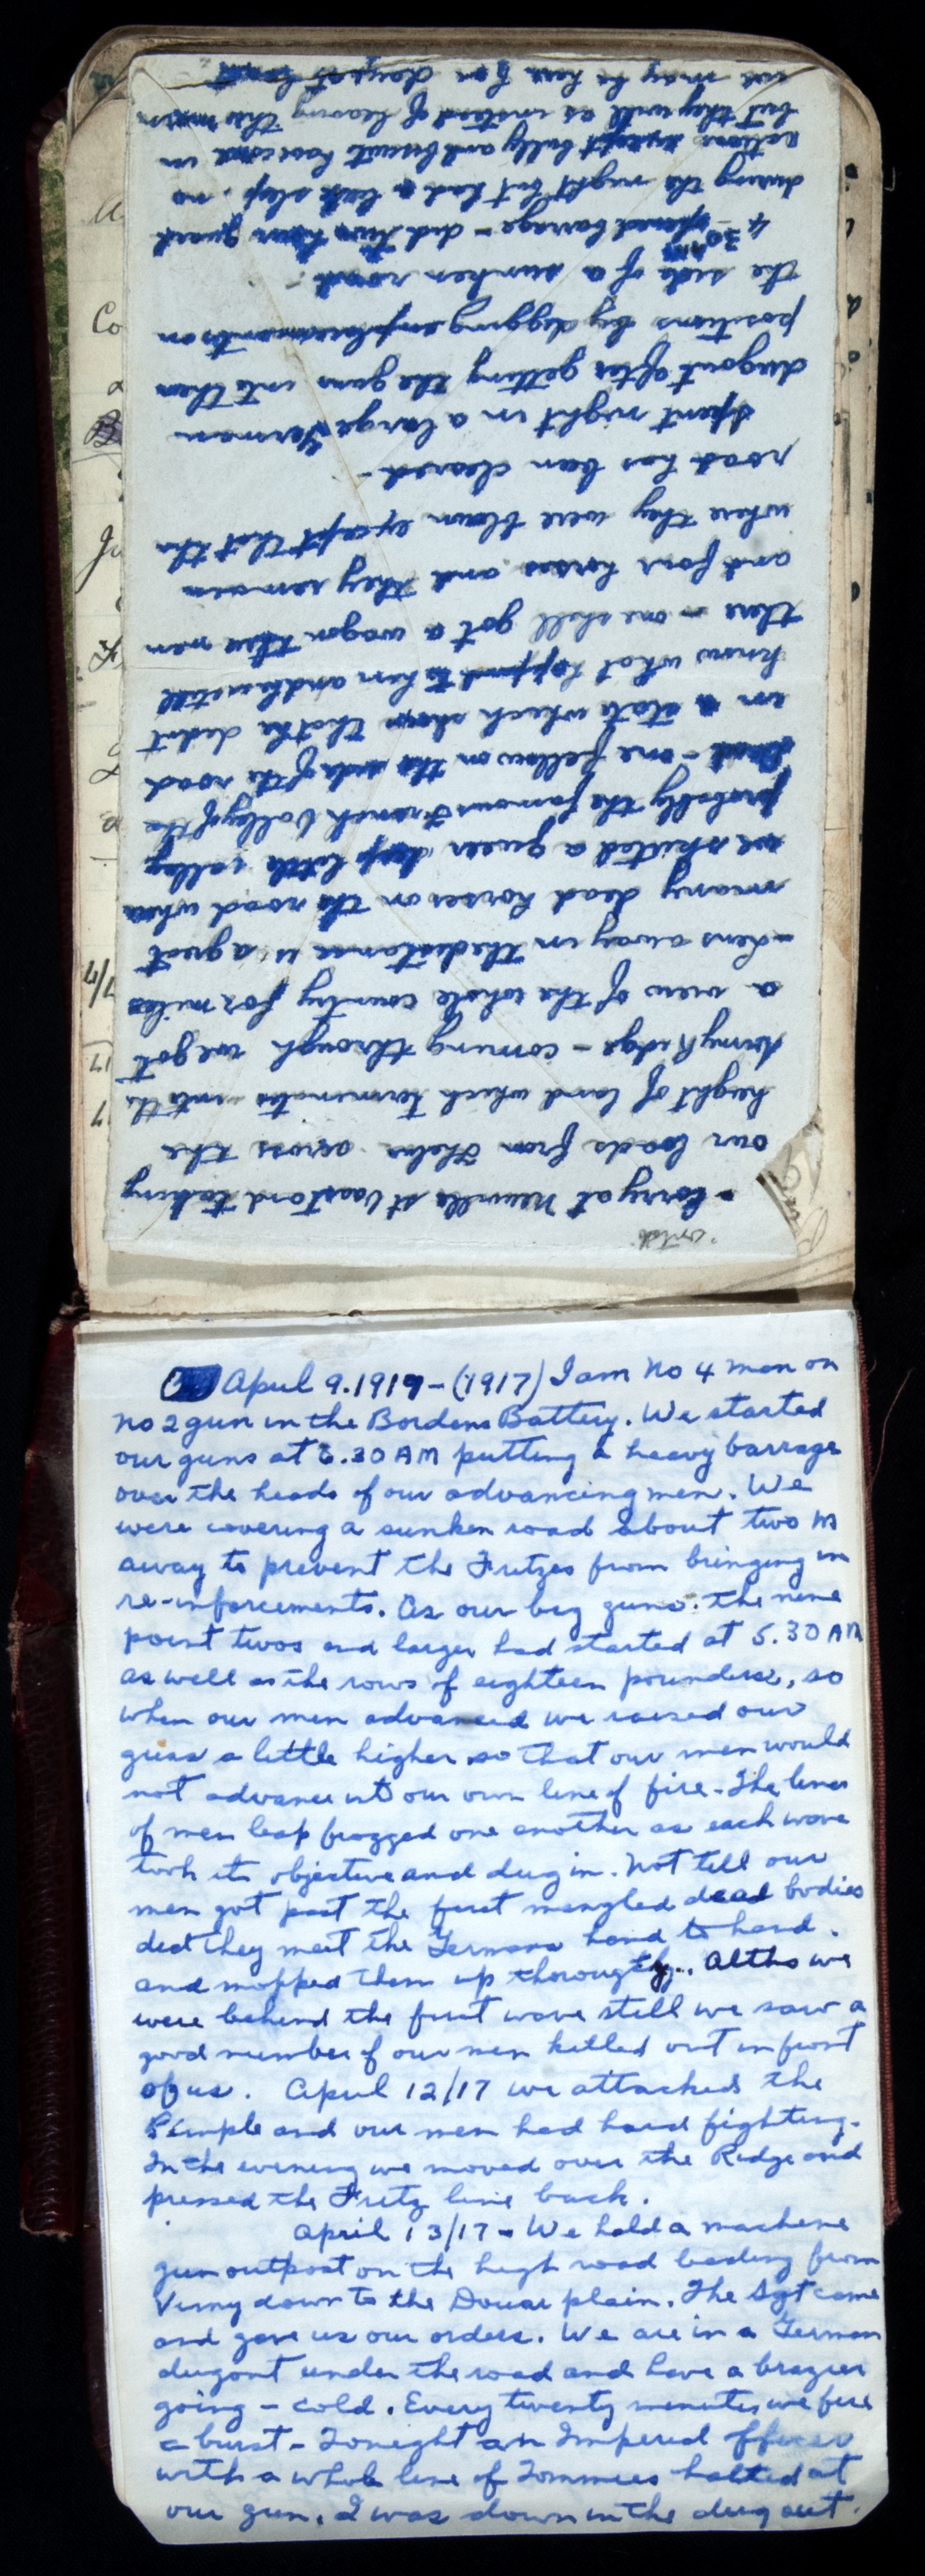 April 9.1919-(1917) I am No 4 man on
No 2 gun in the Bordens Battery. We started
our guns at 6.30 AM putting a heavy barrage
over the heads of our advancing men. We
were covering a sunken road about two M
away to prevent the Fritzes from bringing in
re-inforcements. As our big guns: the nine
point twos and larger had started at 5.30 AM
as well as the rows of eighteen pounders, so
when our men advanced we raised our
guns a little higher so that our men would
not advance into our own line of fire - The lines
of men leap frogged one another as each wave
took its objective and dug in. Not till our
men got past the first mangled dead bodies
did they meet the Germans hand to hand.
and mopped them up thoroughly. Altho we
were behind the first wave still we saw a
good number of our men killed out in front
of us. April 12/17 we attacked the
Pimple and our men had hard fighting.
In the evening we moved over the Ridge and
pressed the Fritz line back.
April 13/17 - We hold a machine
gun outpost on the high road leading from
Vimy down to the Douai plain. The Sgt came
and gave us our orders. We are in a German
dugout under the road and have a brazier
going - cold. Every twenty minutes we fire
a burst - Tonight an Imperial officer
with a whole line of Tommies halted at
our gun. I was down in the dug out.
- Lorry at Neuville St Vaast and taking
our loads from them across the
height of land which terminates into the
Vimy Ridge - coming through we got
a view of the whole country for miles
- Lens away in the distance is a great
many dead horses on the road when
we skirted a queer deep little valley
probably the famous French Valley of the
Dead - one fellow on the side of the road
in a state which shows that he didnt
know what happened to him and he is still
there - one shell got a wagon three men
and four horses and they remain
where they were blown except that the
road has been cleared -
Spent night in a large German
dugout after getting the guns into their
positions by digging emplacements on
the side of a sunken road.
4 30 AM - opened barrage - did two hour guard
during the night but had a little sleep. no
rations except bully and biscuits have come in
but they will as instead of leaving this
we may be here for days